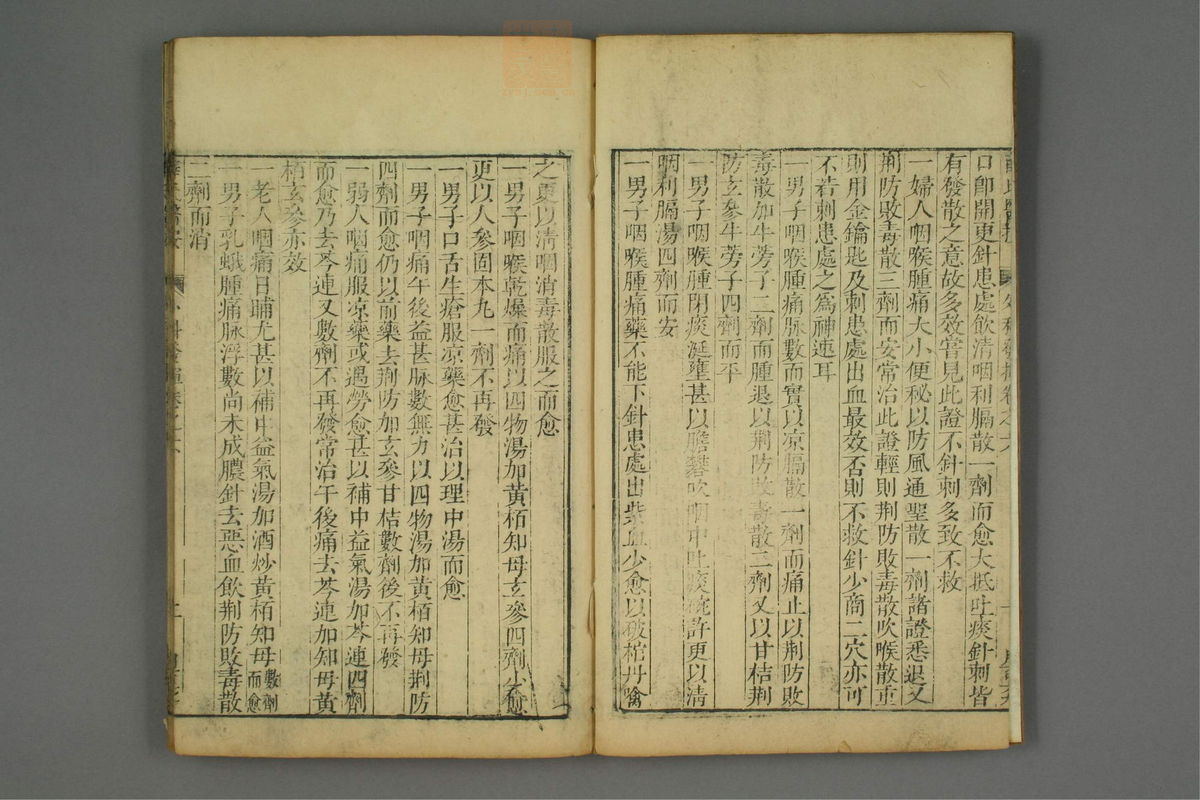 口卽開更針患處飲清咽利膈散一劑而愈大抵吐痰針刺皆
有發散之意故多效嘗見此證不針刺多致不救
一婦人咽喉腫痛大小便秘以防風通聖散一劑諸證悉退又
荆防敗毒散三劑而安常治此證輕則荆防敗毒散吹喉散重
則用金鑰匙及刺患處出血最效否則不救針少商二穴亦可
不若刺患處之爲神速耳
一男子咽喉腫痛脉數而實以凉膈散一劑而痛止以荆防敗
毒散加牛蒡子二劑而腫退以荆防敗毒散二劑又以甘桔荆
防玄參牛蒡子四劑而平
一男子咽喉腫閉痰涎壅甚以膽礬吹咽中吐痰碗許更以清
咽利膈湯四劑而安
一男子咽喉腫痛藥不能下針患處出紫血少愈以破棺丹噙
之更以清咽消毒散服之而愈
一男子咽喉乾燥而痛以四物湯加黄栢知母玄參四劑少愈
更以人參固本丸一劑不再發
一男子口舌生瘡服凉藥愈甚治以理中湯而愈
一男子咽痛午後益甚脉數無力以四物湯加黄栢知母荆防
四劑而愈仍以前藥去荆防加玄參甘桔數劑後不再發
一弱人咽痛服凉藥或遇勞愈甚以補中益氣湯加芩連四劑
而愈乃去芩連又數劑不再發常治午後痛去芩連加知母黄
栢玄參亦效
一老人咽痛日晡尤甚以補中益氣湯加酒炒黄栢知母數劑而愈
一男子乳蛾腫痛脉浮數尚未成膿針去惡血飲荆防敗毒散
二劑而消